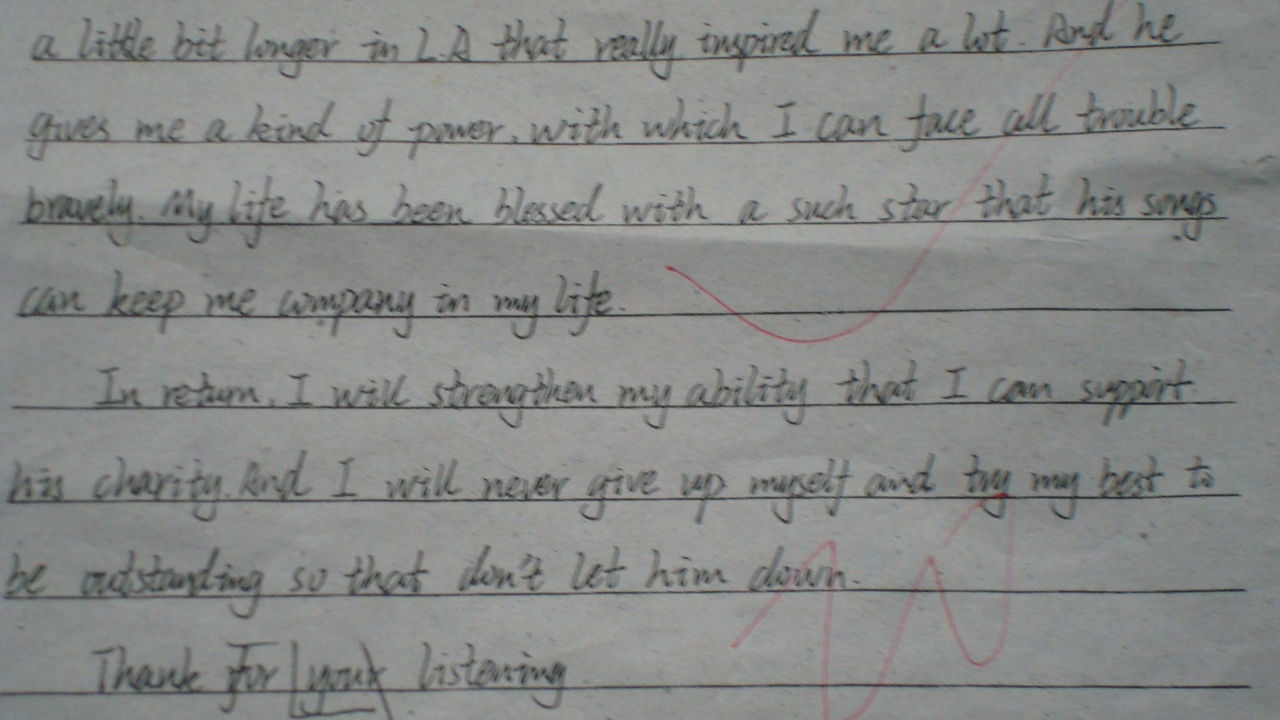 a little bit longer in L.A that really inspired me a lot. And he
gives me a kind of power, with which I can face all trouble
bravely. My life has been blessed with a such star that his songs
can keep me company in my life.
In return, I will strengthen my ability that I can support
his charity. And I will never give up myself and try my best to
be outstanding so that don't let him down.
Thank for your listening